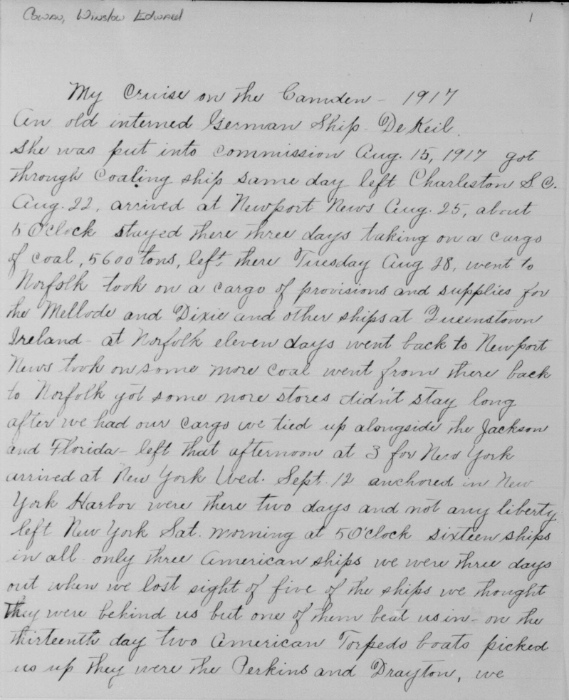 Cowan, Winslow Edward
1
My Cruise on the Camden - 1917
An old interned German Ship De Keil.
She was put into commission Aug. 15, 1917 got
through Coaling ship same day left Charleston S.C.
Aug. 22, arrived at Newport News Aug. 25, about
5 O'Clock stayed there three days taking on a cargo
of coal, 5600 tons, left there Tuesday Aug 28, went to
Norfolk took on a cargo of provisions and supplies for
the Mellode and Dixie and other ships at Queenstown
Ireland - at Norfolk eleven days went back to Newport
News took on some more coal went from there back
to Norfolk got some more stores didn't stay long
after we had our cargo we tied up alongside the Jackson
and Florida - left that afternoon at 3 for New York
arrived at New York Wed. Sept. 12 anchored in New
York Harbor were there two days and not any liberty
left New York Sat. morning at 5 O'Clock sixteen ships
in all only three American ships we were three days
out when we lost sight of five of the ships we thought
they were behind us but one of them beat us in - on the
thirteenth day two American Torpedo boats picked
us up they were the Perkins and Drayton, we